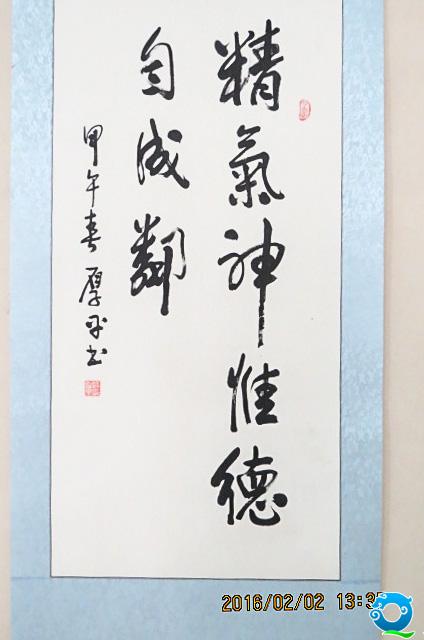 精氣神惟德
自成鄰
甲午春 厚 书
2016/02/02 13:3